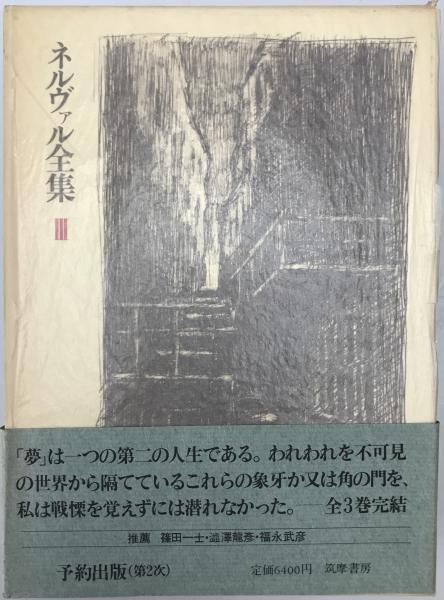 ネルヴァル全集
III
「夢」は一つの第二の人生である。われわれを不可見
の世界から隔てているこれらの象牙か又は角の門を、
私は戦慄を覚えずには潜れなかった。――全3巻完結
推薦 篠田一士・澁澤龍彥・福永武彦
予約出版(第2次) 定価6400円 筑摩書房